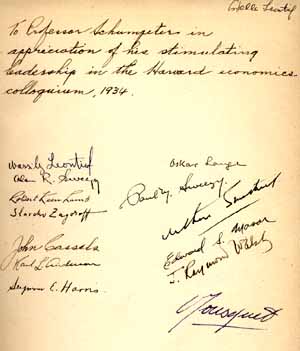 To Professor Schumpeter in
appreciation of his stimulating
leadership in the Harvard economics
colloquium, 1934.
Wassily Leontief
Alan R. Sweezy
Slavcho Zagoroff
John Cassels
Karl L. Anderson
Seymour E. Harris
Oskar Lange
Paul M. Sweezy
Edward S. Mason
J. Raymond Walsh